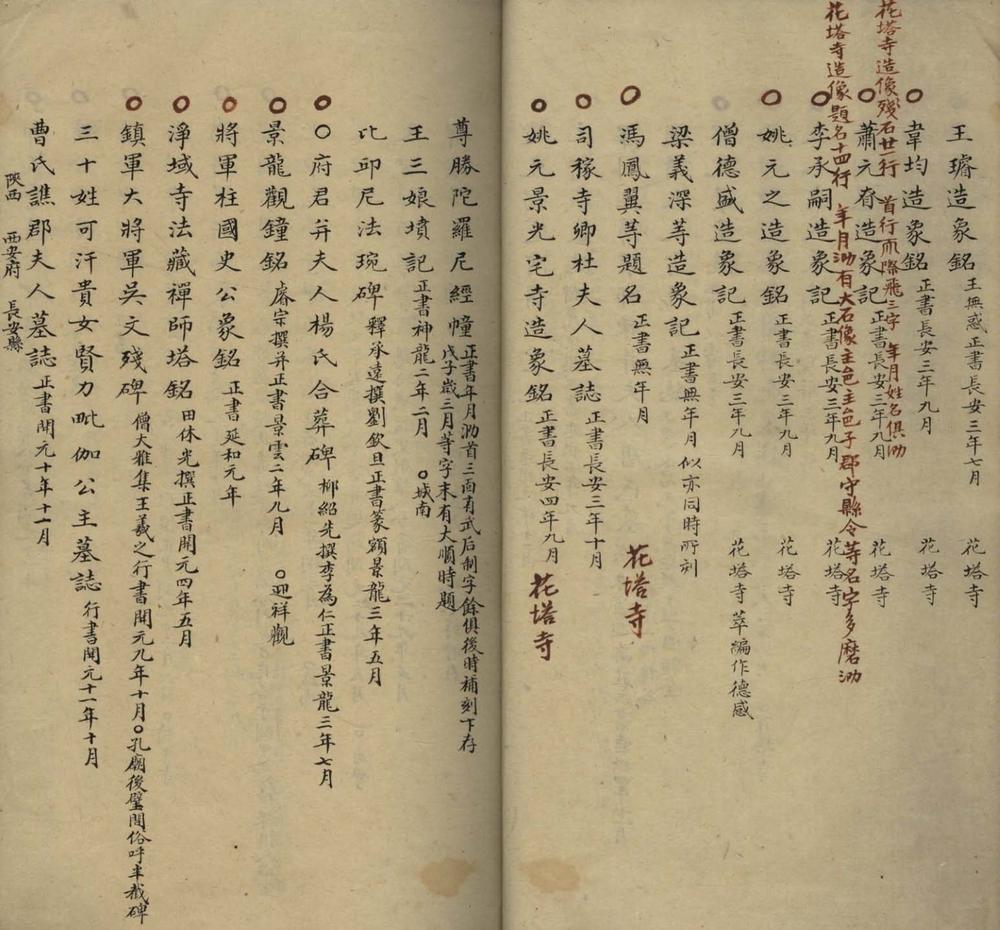 王璿造象銘 王無惑正書長安三年七月 花塔寺
韋均造象銘 正書長安三年九月 花塔寺
花塔寺造像殘石廿一行 首行而際飛三字 年月姓名俱泐
蕭元眘造象記 正書長安三年九月 花塔寺
花塔寺造像題名十四行 年月泐有大石像主邑主邑子郡守縣令等名字多磨泐
李承嗣造象記 正書長安三年九月 花塔寺
姚元之造象銘 正書長安三年九月 花塔寺
僧德感造象記 正書長安三年九月 花塔寺 萃編作德感
梁義深等造象記 正書無年月 似亦同時所刻
馮鳳翼等題名 正書無年月 花塔寺
司稼寺卿杜夫人墓誌 正書長安三年十月
姚元景光宅寺造象銘 正書長安四年九月 花塔寺
尊勝陀羅尼經幢 正書年月泐首三面有武后制字餘俱後時補刻下存戊子歲三月等字末有大順時題
王三娘墳記 正書神龍二年二月 城南
比邱尼法琬碑 釋承遠撰劉欽旦正書篆額景龍三年五月
○府君并夫人楊氏合葬碑 柳紹先撰李為仁正書景龍三年七月
景龍觀鐘銘 睿宗撰并正書景雲二年九月 迎祥觀
將軍柱國史公象銘 正書延和元年
淨域寺法藏禪師塔銘 田休光撰正書開元四年五月
鎮軍大將軍吳文殘碑 僧大雅集王羲之行書開元九年十月○孔廟後壁間俗呼半截碑
三十姓可汗貴女賢力毗伽公主墓誌 行書開元十一年十月
曹氏譙郡夫人墓誌 正書開元十年十一月
陝西 西安府 長安縣